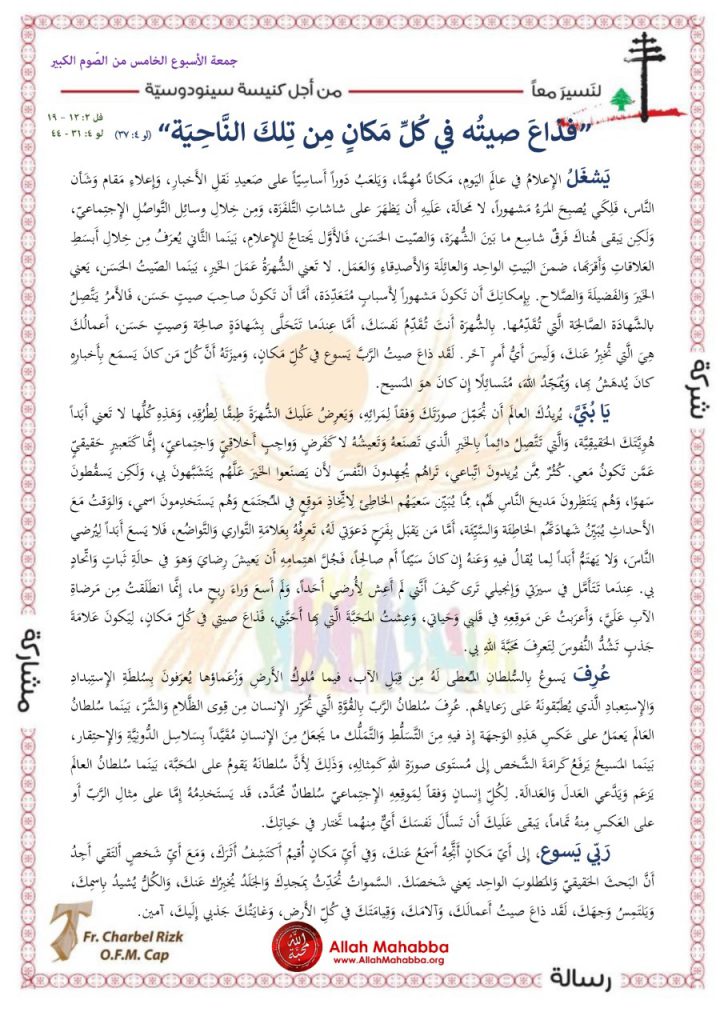 جمعة الأسبوع الخامس من الصّوم الكبير
لنَسيرَ معاً
من أجل كنيسة سينودوسيّة
فل ٢: ١٢ - ١٩
لو ٤: ٣١ - ٤٤
"فذاعَ صيتُه في كُلِّ مَكانٍ مِن تِلكَ النَّاحِيَة" (لو ٤: ٣٧)
يَشغَلُ الإعلامُ في عالَمِ اليَومِ، مَكانًا مُهِمًّا، وَيَلعَبُ دَوراً أساسِيّاً على صَعيدِ نَقلِ الأخبارِ، وَإعلاءِ مَقام وَشَأن
النَّاس، فَلِكَي يُصبِحَ المَرءُ مَشهوراً، لا مَحالَة، عَلَيهِ أن يَظهَرَ على شاشاتِ التَّلفَزَة، وَمِن خِلالِ وسائِلِ التَّواصُلِ الإجتماعِيّ،
وَلَكِن يَبقى هُناكَ فَرقٌ شاسِع ما بَينَ الشُّهرَة، وَالصّيت الحَسَن، فَالأوَّل يَحتاجُ للإعلام، بَينَما الثَّاني يُعرَفُ مِن خِلالِ أبسَطِ
العَلاقاتِ وَأقرَبِها، ضمنَ البَيتِ الواحِد وَالعائِلَة وَالأصدِقاءِ وَالعَمَل. لا تَعني الشُّهرَةُ عَمَلَ الخَيرِ، بَينَما الصّيتُ الحَسَن، يَعني
الخَيرَ وَالفَضيلَةَ وَالصَّلاح. بِإمكانِكَ أن تَكونَ مَشهوراً لِأسبابٍ مُتَعَدِّدَة، أمَّا أن تَكونَ صاحِبَ صيتٍ حَسَن، فَالأمرُ يَتَّصِلُ
بالشَّهادَة الصَّالحَة الَّتي تُقَدِّمُها. بِالشُّهرَة أنتَ تُقَدِّمُ نَفسَكَ، أمَّا عِندَما تَتَحَلَّى بِشَهادَةٍ صالِحَة وَصيتٍ حَسَن، أعمالُكَ
هِيَ الَّتي تُخبِرُ عَنكَ، وَليسَ أيُّ أمرٍ آخَر. لَقَد ذاعَ صيتُ الرَّبِّ يَسوع في كُلِّ مَكانٍ، وَميزَتُه أنَّ كُلّ مَن كانَ يَسمَع بِأخبارِهِ
كانَ يُدهَشُ بِها، وَيُمَجِّدُ الله، مُتَسائِلًا إن كانَ هوَ المَسيح.
يَا بُنَيَّ، يُريدُكَ العالَم أن تُجَمِّلَ صورَتَكَ وَفقاً لِمَرائِهِ، وَيَعرِضُ عَلَيكَ الشُّهرَة طِبقًا لِطُرُقِهِ، وَهَذِهِ كُلُّها لا تَعني أبَداً
هُوِيَّتَكَ الحَقيقِيَّة، وَالَّتي تَتَّصِلُ دائِماً بِالخَيرِ الَّذي تَصنَعهُ وَتَعيشُهُ لا كَفَرضٍ وَواجِبٍ أخلاقِيٍّ وَاجتِماعِيّ، إنَّما كَتَعبيرٍ حَقيقِيٍّ
عَمَّن تَكونُ مَعي. كُثُرٌ مِمَّن يُريدون اتِّباعي، تَراهُم يُجهِدونَ النَّفسَ لأن يَصنَعوا الخَيرَ عَلَّهُم يَتَشَبَّهونَ بي، وَلَكِن يَسقُطونَ
سَهوًا، وَهُم يَنتَظِرونَ مَديحَ النَّاسِ لَهُم، مِمَّا يُبَيِّن سَعيَهُم الخاطِئ لِاتِّخاذِ مَوقِعٍ في المُجتَمَع وَهُم يَستَخدِمونَ اسمي، وَالوَقتُ مَعَ
الأحداثِ يُبَيِّنُ شَهادَتَهُم الخاطِئَة وَالسَّيِّئَة، أمَّا مَن يَقبَل بِفَرَحٍ دَعوَتي لَهُ، تَعرِفُهُ بِعَلامَةِ التَّواري وَالتَّواضُع، فَلا يَسعَ أبَداً لِيُرضي
النَّاسَ، وَلا يَهتَمُّ أبَداً لِما يُقالُ فيهِ وَعَنهُ إن كانَ سَيِّئاً أم صالحاً، فَجُلَّ اهتِمامِهِ أن يَعيشَ رِضايَ وَهوَ في حالَةِ ثَباتٍ وَاتِّحادٍ
بي. عِندَما تَتَأمَّل في سيرَتي وَإنجيلي تَرى كَيفَ أنَّني لَم أعِش لِأُرضي أحَداً، وَلَم أسعَ وَراءَ رِبحٍ ما، إنَّما انطَلَقتُ مِن مَرضاةِ
الآبِ عَلَيَّ، وَأعرَبتُ عَن مَوقِعِهِ في قَلبي وَحَياتي، وَعِشتُ المَحَبَّة الَّتي بِها أحَبَّني، فَذاعَ صيتي في كُلِّ مَكانٍ، لِيَكونَ عَلامَةَ
جَذبٍ تَشُدُّ النُّفوسَ لِتَعرِفَ مَحَبَّةَ اللهِ بي.
عُرِفَ يَسوعُ بِالسُّلطانِ المُعطى لَهُ مِن قِبَلِ الآب، فيما مُلوكُ الأرضِ وَزُعَماؤها يُعرَفونَ بِسُلطَةِ الإستِبدادِ
وَالإستِعبادِ الَّذي يُطَبِّقونَهُ عَلى رَعاياهُم. عُرِفَ سُلطانُ الرَّبّ بِالقُوَّةِ الَّتي تُحَرِّر الإنسان مِن قِوى الظَّلامِ وَالشَّرّ، بَينَما سُلطانُ
العالَم يَعمَلُ على عَكسِ هَذِهِ الوَجهَة إذ فيهِ مِنَ التَّسَلُّطِ وَالتَّمَلُّك ما يَجعَلُ مِنَ الإنسانِ مُقَيَّداً بِسَلاسِلِ الدُّونِيَّةِ وَالإحتِقار،
بَينَما المَسيحُ يَرفَعُ كَرامَةَ الشَّخص إلى مُستَوى صورَةِ اللهِ كَمِثالِهِ، وَذَلِكَ لِأنَّ سُلطانَهُ يَقومُ على المَحَبَّة، بَينَما سُلطانُ العالَم
يَزعَم وَيَدَّعي العَدلَ وَالعَدالَة. لِكُلِّ إنسانٍ وَفقاً لِمَوقِعِهِ الإجتِماعِيّ سُلطانٌ مُحَدَّد، قَد يَستَخدِمُهُ إمَّا على مِثالِ الرَّبّ أو
على العَكسِ مِنهُ تَماماً، يَبقى عَلَيكَ أن تَسألَ نَفسَكَ أيٌّ مِنهُما تَختار في حَياتِكَ.
رَبّي يَسوع، إلى أيِّ مَكانٍ أتَّجِهُ أسمَعُ عَنكَ، وَفي أيِّ مَكانٍ أُقيمُ أكتَشِفُ أثَرَكَ، وَمَعَ أيِّ شَخصٍ ألتَقي أجِدُ
أنَّ البَحثَ الحَقيقيّ وَالمَطلوبَ الواحِد يَعني شَخصَكَ. السَّمواتُ تُحَدِّثُ بِمَجدِكَ وَالجَلَدُ يُخبِرُك عَنكَ، وَالكُلُّ يُشيدُ بِاسمِكَ،
وَيَلتَمِسُ وَجهَكَ، لَقَد ذاعَ صيتُ أعمالَكَ، وَآلامَكَ، وَقِيامَتَكَ في كُلِّ الأرضِ، وَغايَتُكَ جَذبي إلَيكَ، آمين.
شركة
مشاركة
رسالة
Fr. Charbel Rizk
O.F.M. Cap
الله محبة
Allah Mahabba
www.AllahMahabba.org